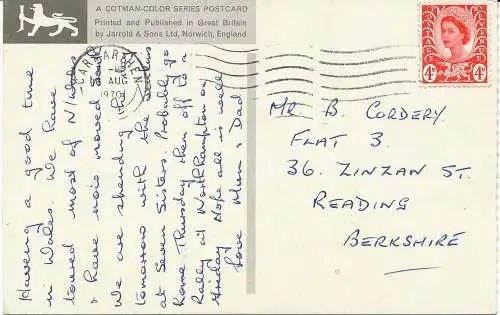 A COTMAN-COLOR SERIES POSTCARD
Printed and Published in Great Britain
by Jarrold & Sons Ltd, Norwich, England
CARMARTHEN
AUG
1970
4D 4D
Having a good time
in Wales. We have
toured most of N/Wales
& have now moved South
We are spending the
tomorrow with the
at Seven Sisters. Probably go
home Thursday then off to a
Rally at Northampton on
Friday. Hope all is well
Love Mum & Dad
Mr B. CORDERY
FLAT 3.
36. ZINZAN ST.
READING
BERKSHIRE